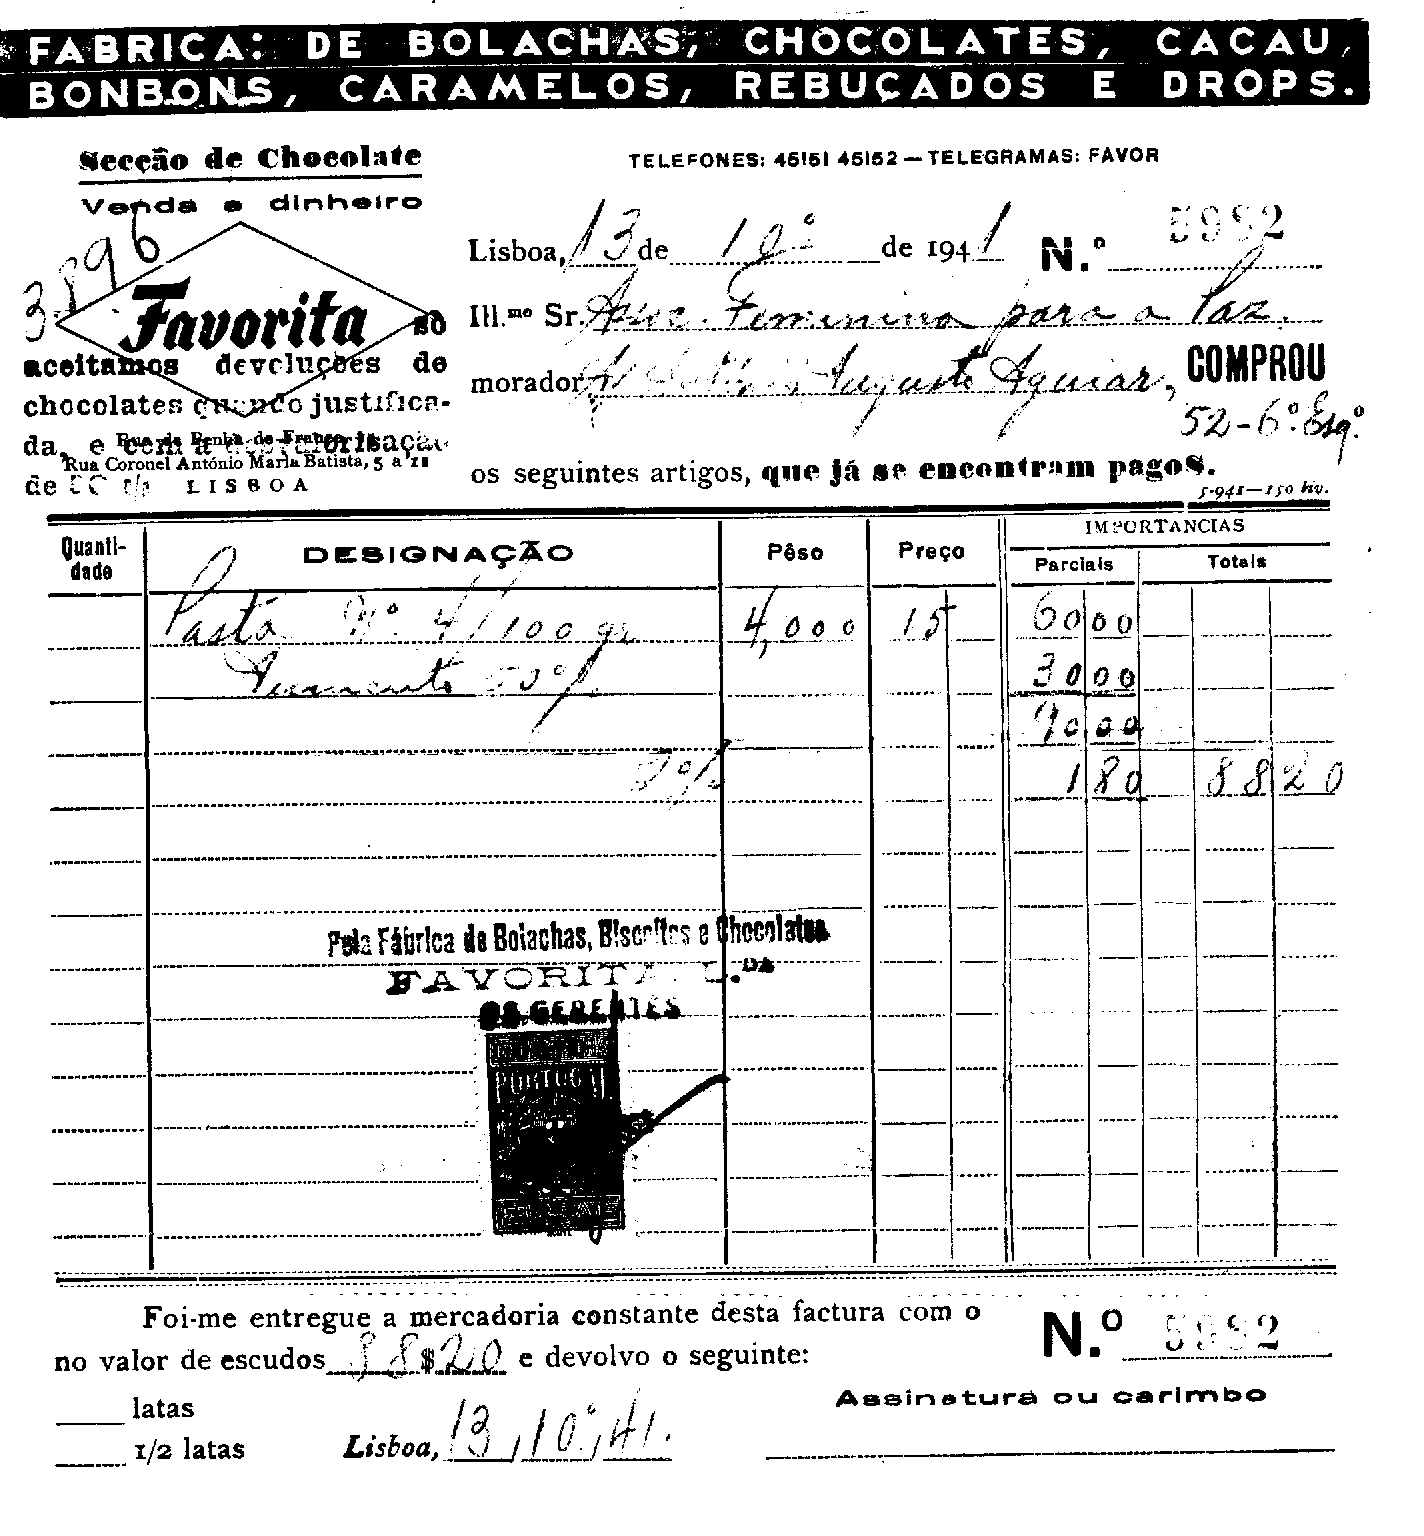 FABRICA: DE BOLACHAS, CHOCOLATES, CACAU,
BONBONS, CARAMELOS, REBUÇADOS E DROPS.
Secção de Chocolate
TELEFONES: 45151 45152 — TELEGRAMAS: FAVOR
Venda a dinheiro
3.896
Lisboa, 13 de 10º de 1941 N.º 5982
Favorita só
Ill.mo Sr. Assoc. Feminina para a Paz.
aceitamos devoluções de
morador Augusto Aguiar, COMPROU
chocolates quando justifica-
52-6º. Esqº.
da, e com a desvalorisação
Rua da Penha de França
Rua Coronel António Maria Batista, 5 a 11
os seguintes artigos, que já se encontram pagos.
de LISBOA
5-941—150 liv.
Quanti-dade DESIGNAÇÃO Pêso Preço IMPORTANCIAS
Parciais Totais
Pasta Nº 4/100 gr 4,000 15 60 00
Aumento 50% 30 00
90 00
2% 1 80 88 20
Pela Fábrica de Bolachas, Biscoitos e Chocolates
FAVORITA, L.DA
OS GERENTES
PORTUGAL
Foi-me entregue a mercadoria constante desta factura com o N.º 5982
no valor de escudos 88$20 e devolvo o seguinte:
Assinatura ou carimbo
latas
1/2 latas Lisboa, 13, 10º, 41.